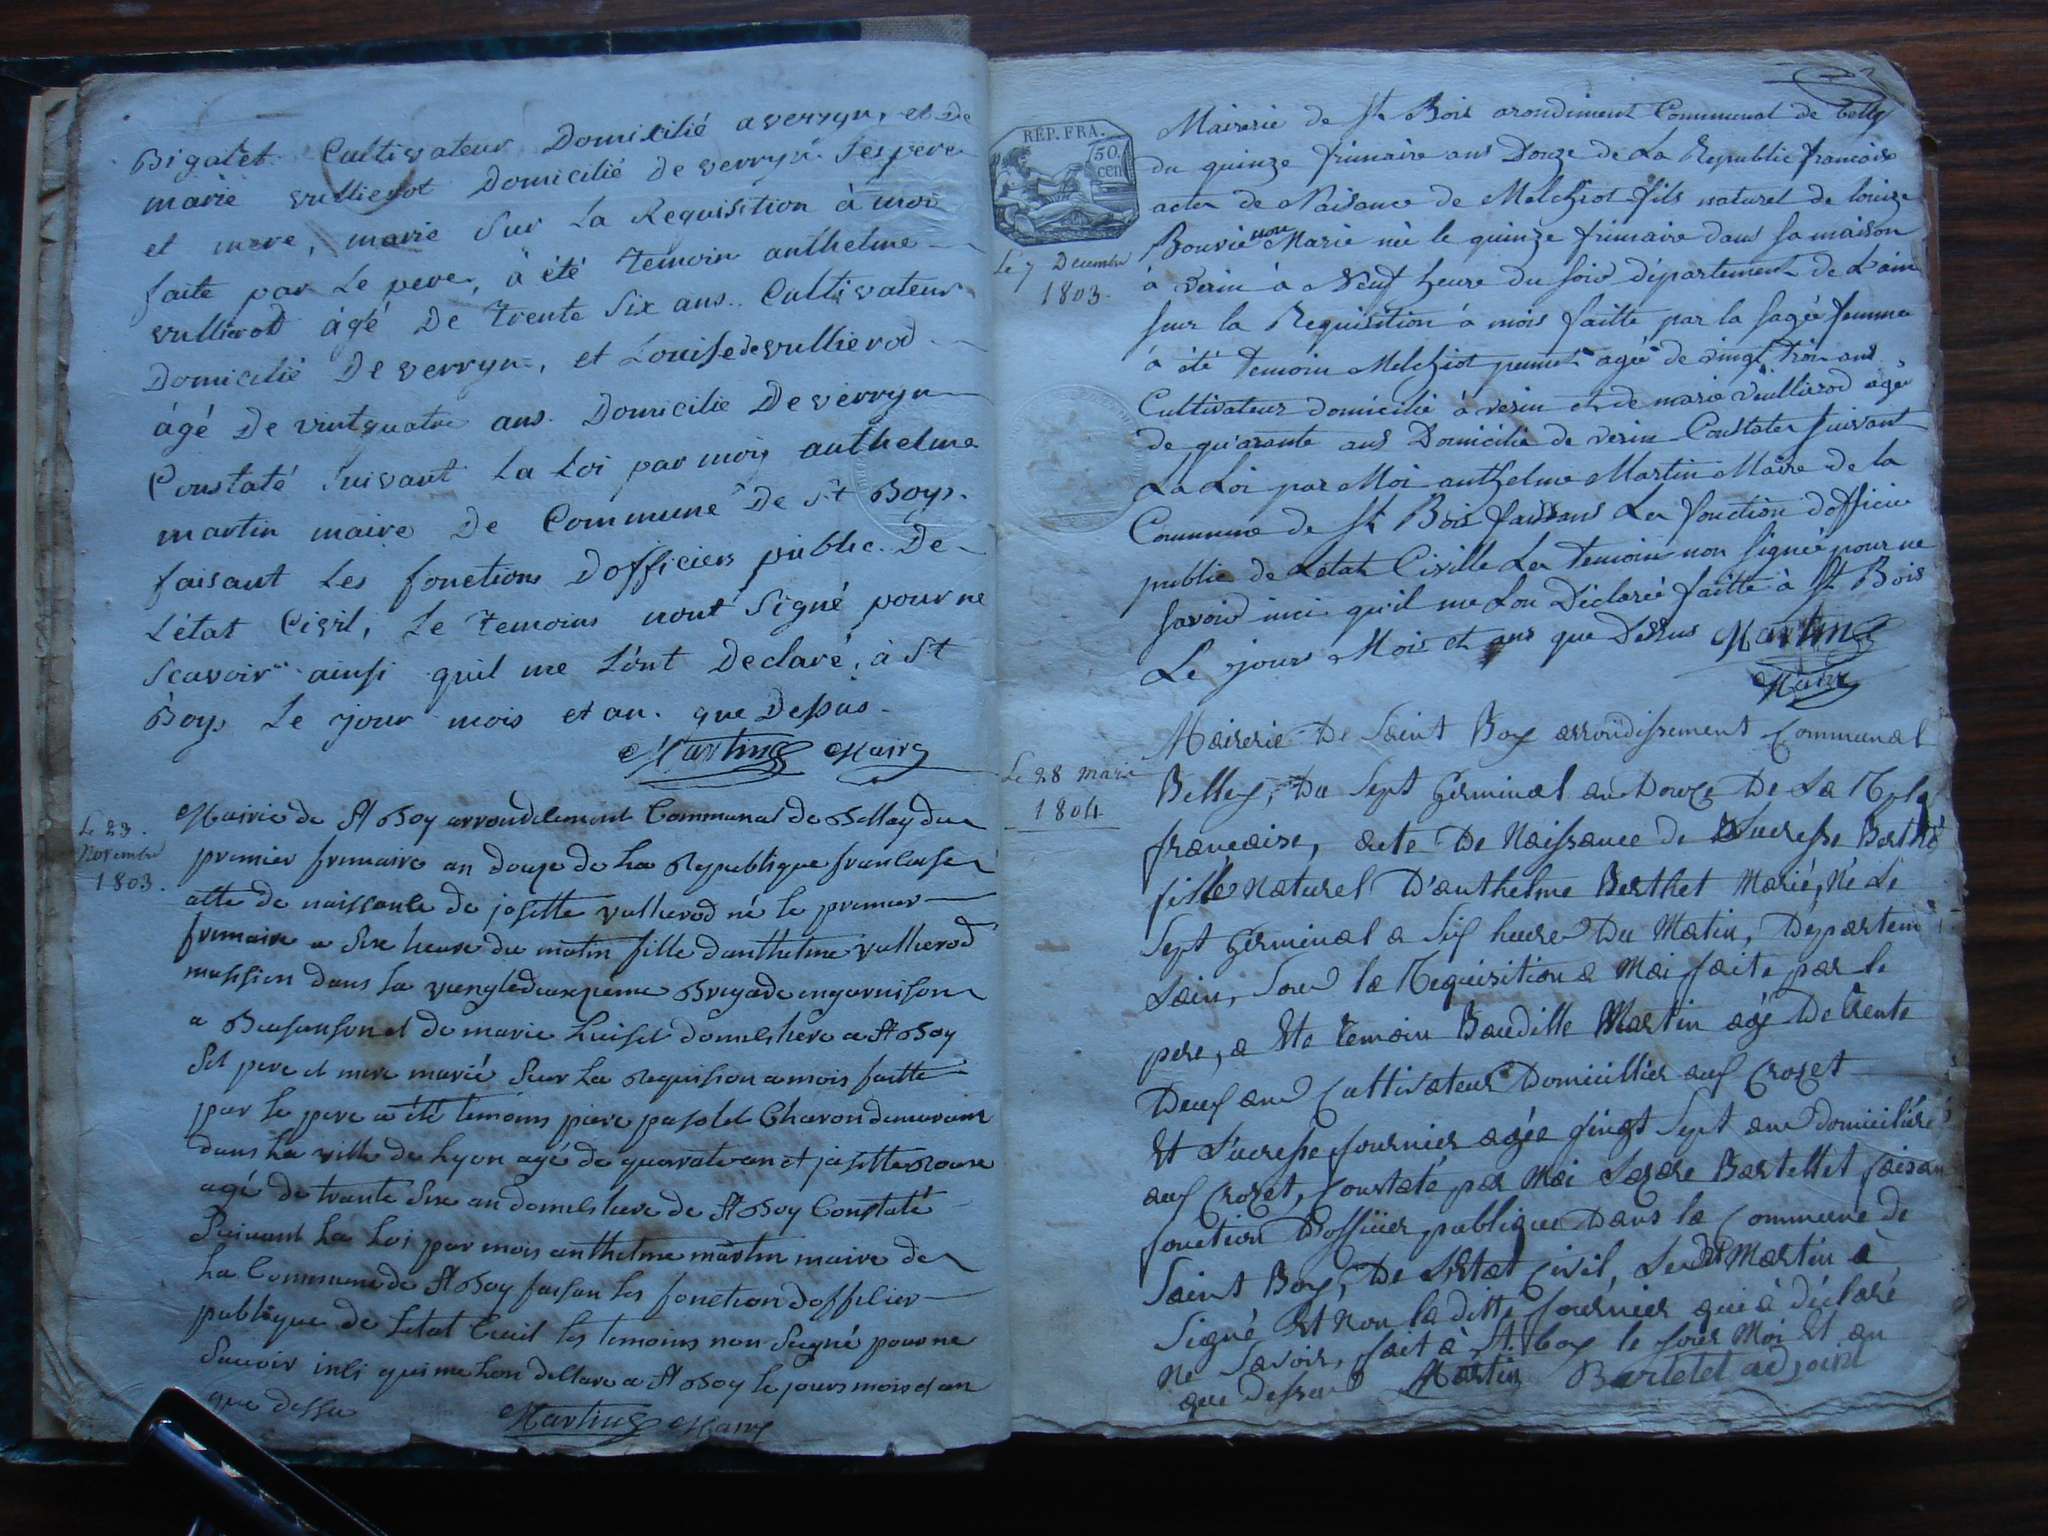 Bigalet Cultivateur Domixilié a verryn, et De
marie vullierot Domicilié De verryn Ses pere
et mere, marié Sur La Requisition à moi
faite par Le pere, à été Temoin anthelme
vullierod âgé De Trente Six ans Cultivateur
Domicilié De verryn, et Louise de vullierod
âgé De vintquatre ans Domicilie De verryn
Constaté Suivant La Loi par moy anthelme
martin maire De Commune De St Boys
faisant Les fonctions D'officiers public De
L'état Civil, Le Temoins nont Signé pour ne
Scavoir ainsi quil me L'ont Declaré, à St
Boys Le jour mois et an que Dessus
Martin Maire
Le 23
Novembre
1803.
Mairie de St Boy arrondisement Communal de Bellay du
premier frimaire an douze de La Republique francaise
atte de naissance de josette vulherod né le premier
frimaire a Six heure du matin fille d'anthelme vulherod
dans la Brigade en garnison
a Besanson et de marie domestiere a St Boy
Set pere et mere marié Sur La Requision a mois faitte
par le pere a été temoins piere Charon demeurant
dans La ville de Lyon agé de quarate an et josette
agé de trante Six an domestiere de St Boy Constaté
Suivant La Loi par mois anthelme martin maire de
La Commune de St Boy faisan les fonction d'offisier
publique de Letat Civil les temoins non Signé pour ne
Savoir insi qui me Lon dellare a St Boy le jours mois et an
que dessu
Martin Maire
RÉP. FRA.
50.
cen
Le 7 Decembre
1803.
Mairerie de St Bois arondiment Communal de belley
du quinze frimaire ans Douze de La Republic francaise
acte de Naisance de Melchiot fils naturel de louize
Bouvie non Marie né le quinze frimaire dans sa maison
à verin à Neuf heure du soir département de L'ain
sur la Requisition à mois faitte par la sagée femme
à été temoin Melchiot agée de vingt trois ans
Cultivateur domicilié à verin et de marie veullierod agée
de quarante ans Domicilié de verin Constater suivant
La Loi par Moi anthelme Martin Maire de la
Commune de St Bois faissans La fonction d'officie
public de L'etat Civille Les temoin non signée pour ne
savoir inci qu'il me L'on Déclarée faitte à St Bois
Le jour Mois et ans que Dessus Martin
Maire
Le 28 mars
1804
Mairerie De Saint Boy arrondissement Communal
Belley, Du Sept Germinal an Douze De La
francaise, acte De Naissance de Lucresse Berthe
fille Naturel D'anthelme Berthet Marié, Né Le
Sept Germinal a Six heure Du Matin, Departem
Lain, Sour la Requisition a Moi faite par le
pere, a Ete temoin Baudille Martin agé De trente
Deux ans Cultivateur Domicillier aux Crozet
Et Lucresse fournier agée vingt Sept ans domiciliére
aux Crozet, Constaté par Moi Lazare Bartellet faisan
fonction D'offiïier publique Dans la Commune de
Saint Boy, De L'Etat Civil, Le dit Martin à
Signé Et Non laditte fournier qui à déclaré
Ne Savoir, fait à St boy le jour Moi Et an
que dessus Martin Bartelet adjoint